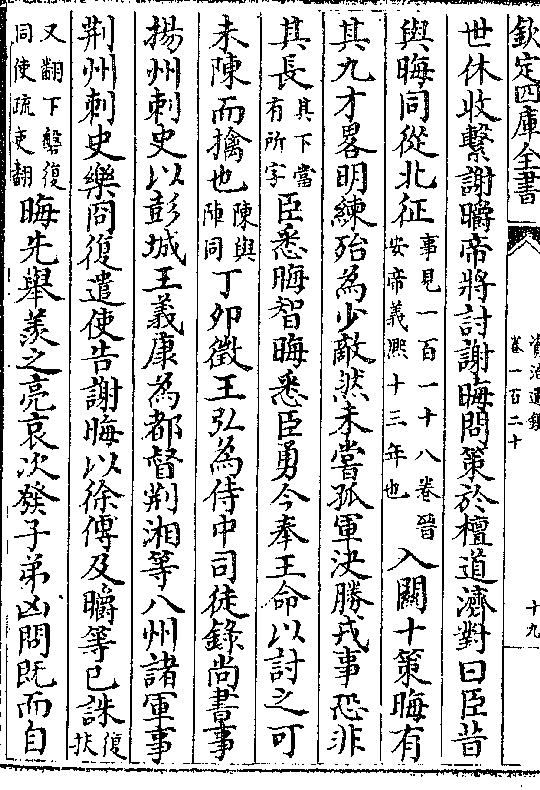 欽定四庫全書
資治通鑑
卷一百二十
十九
世休收繫謝㬭帝將討謝晦問策於檀道濟對曰臣昔
與晦同從北征事見一百一十八卷晉安帝義熙十三年也入關十策晦有
其九才畧明練殆為少敵然未嘗孤軍決勝戎事恐非
其長其下當有所字臣悉晦智晦悉臣勇今奉王命以討之可
未陳而擒也陳與陣同丁卯徵王弘為侍中司徒錄尚書事
揚州刺史以彭城王義康為都督荆湘等八州諸軍事
荆州刺史樂冏復遣使告謝晦以徐傅及㬭等已誅復扶
又翻下鏧復同使疏吏翻晦先舉羨之亮哀次發子弟凶問既而自